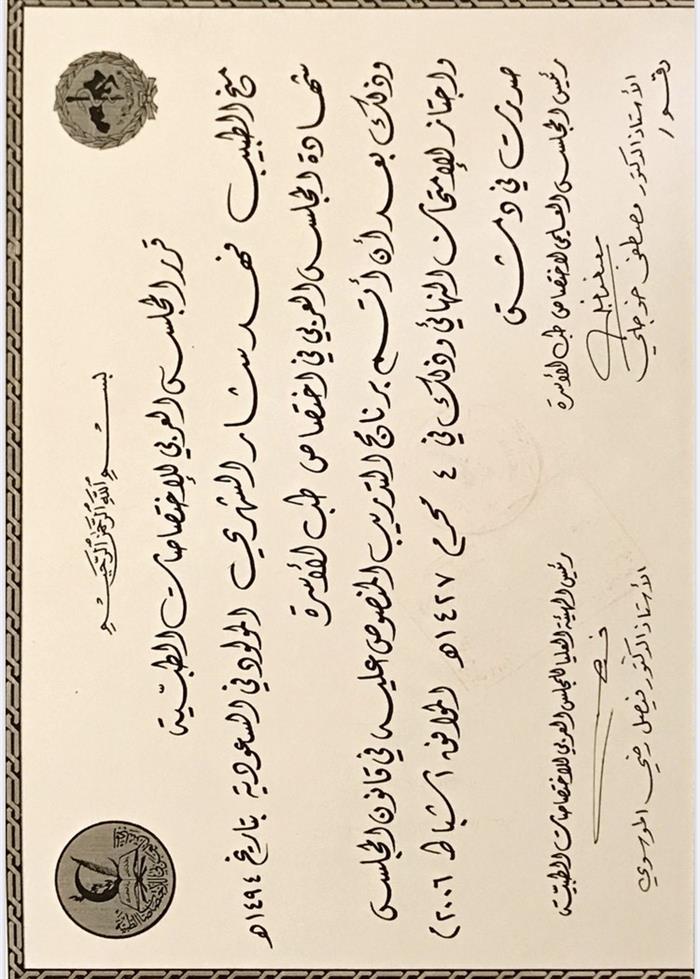 بسم الله الرحمن الرحيم
قرر المجلس العربي للإختصاصات الطبيّة
منح الطبيب فهد سثار الشهري المولود في السعودية بتاريخ ١٤٩٤هـ
شهادة المجلس العربي في اختصاص طب الأسرة
وذلك بعد أن أتم برنامج التدريب المنصوص عليه في قانون المجلس
واجتاز الإمتحان النهائي وذلك في ٤ محرم ١٤٢٧هـ الموافق ١ شباط ٢٠٠٦م
صدرت في دمشق
رئيس المجلس العلمي لاختصاص طب الأسرة
رئيس الهيئة العليا للمجلس العربي للاختصاصات الطبيّة
الأستاذ الدكتور مصطفى خوجلي
الأستاذ الدكتور فيصل رضي الموسوي